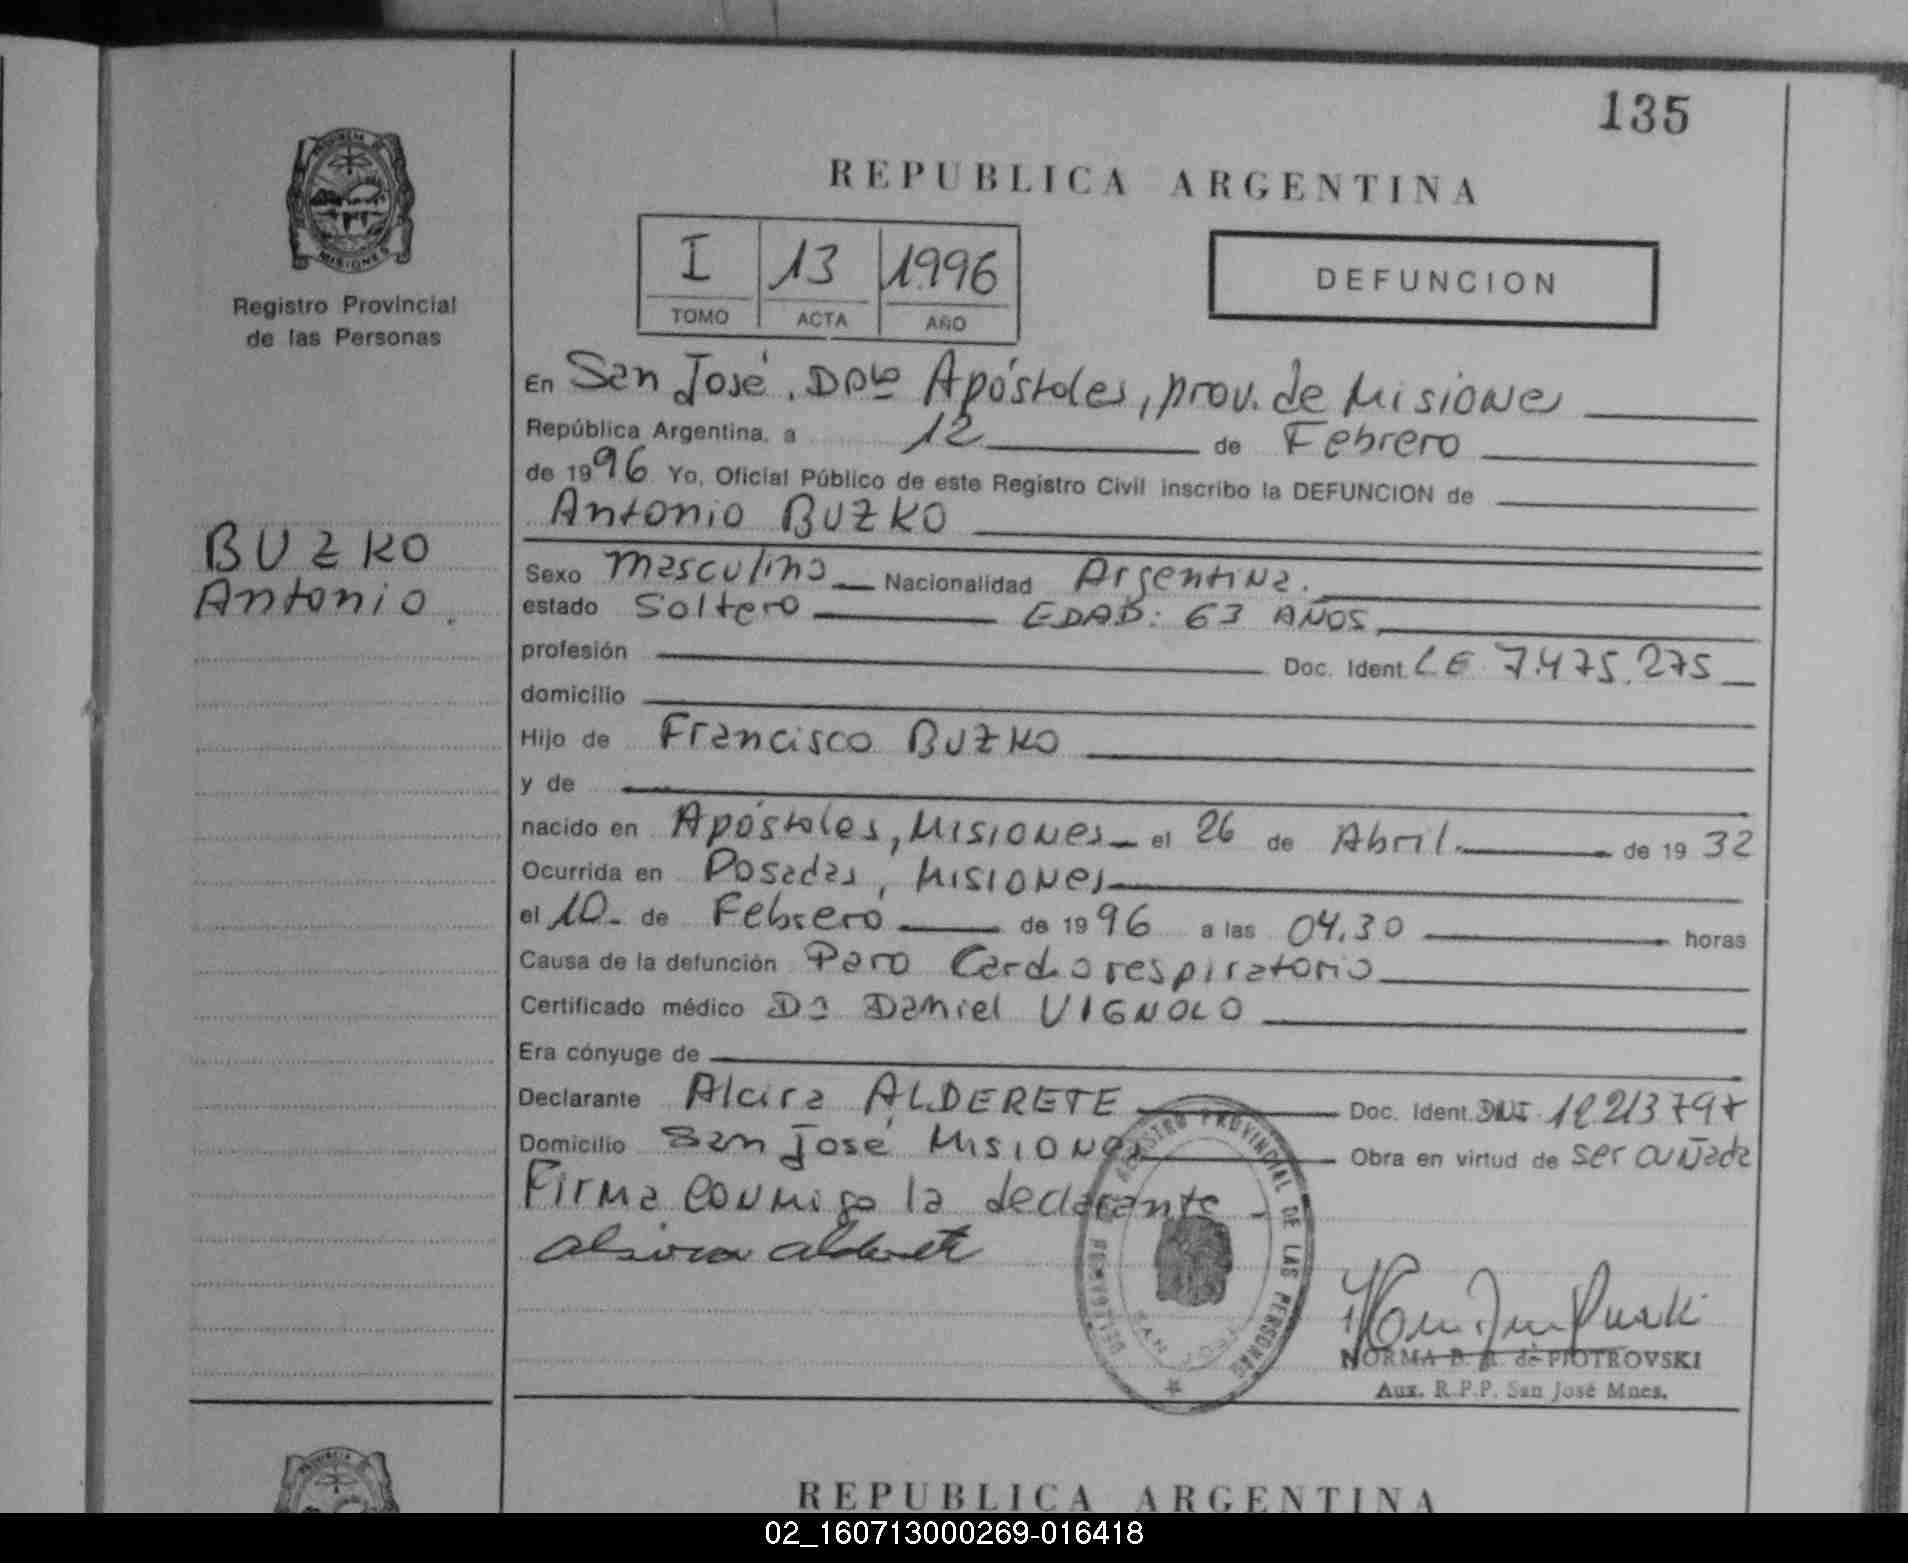 135
REPUBLICA ARGENTINA
PROVINCIA DE
MISIONES
Registro Provincial
de las Personas
I 13 1.996
TOMO ACTA AÑO
DEFUNCION
En San José. Dpto Apóstoles, prov. de Misiones
República Argentina, a 12 de Febrero
de 1996 Yo, Oficial Público de este Registro Civil inscribo la DEFUNCION de
Antonio BUZKO
BUZKO
Antonio.
Sexo Masculino Nacionalidad Argentina.
estado Soltero EDAD: 63 AÑOS
profesión Doc. Ident. L E 7.475.275
domicilio
Hijo de Francisco BUZKO
y de
nacido en Apóstoles, Misiones el 26 de Abril. de 1932
Ocurrida en Posadas, Misiones
el 10 de Febrero de 1996 a las 04.30 horas
Causa de la defunción Paro Cardiorespiratorio
Certificado médico Dr Daniel VIGNOLO
Era cónyuge de
Declarante Alcira ALDERETE Doc. Ident. DNI 12.213797
Domicilio San José Misiones Obra en virtud de ser cuñada
Firma conmigo la declarante
alsira alderete
DELEGACION REGISTRO PROVINCIAL DE LAS PERSONAS
SAN JOSE
NORMA B. de PIOTROVSKI
Aux. R.P.P. San José Mnes.
REPUBLICA ARGENTINA
PROVINCIA
02_160713000269-016418